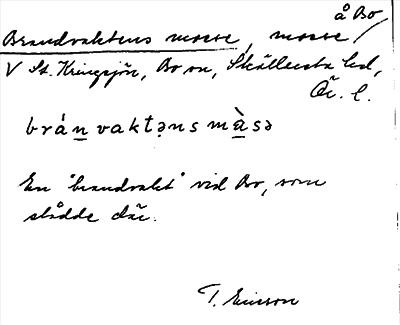 å Bo
Brandvaktens mosse, mosse
V St. Kringsjön, Bo sn, Skyllersta hd,
Ör. l.
brán̲vaktənsmà̲sə
En "brandvakt" vid Bo, som
slådde där.
T. Ericsson